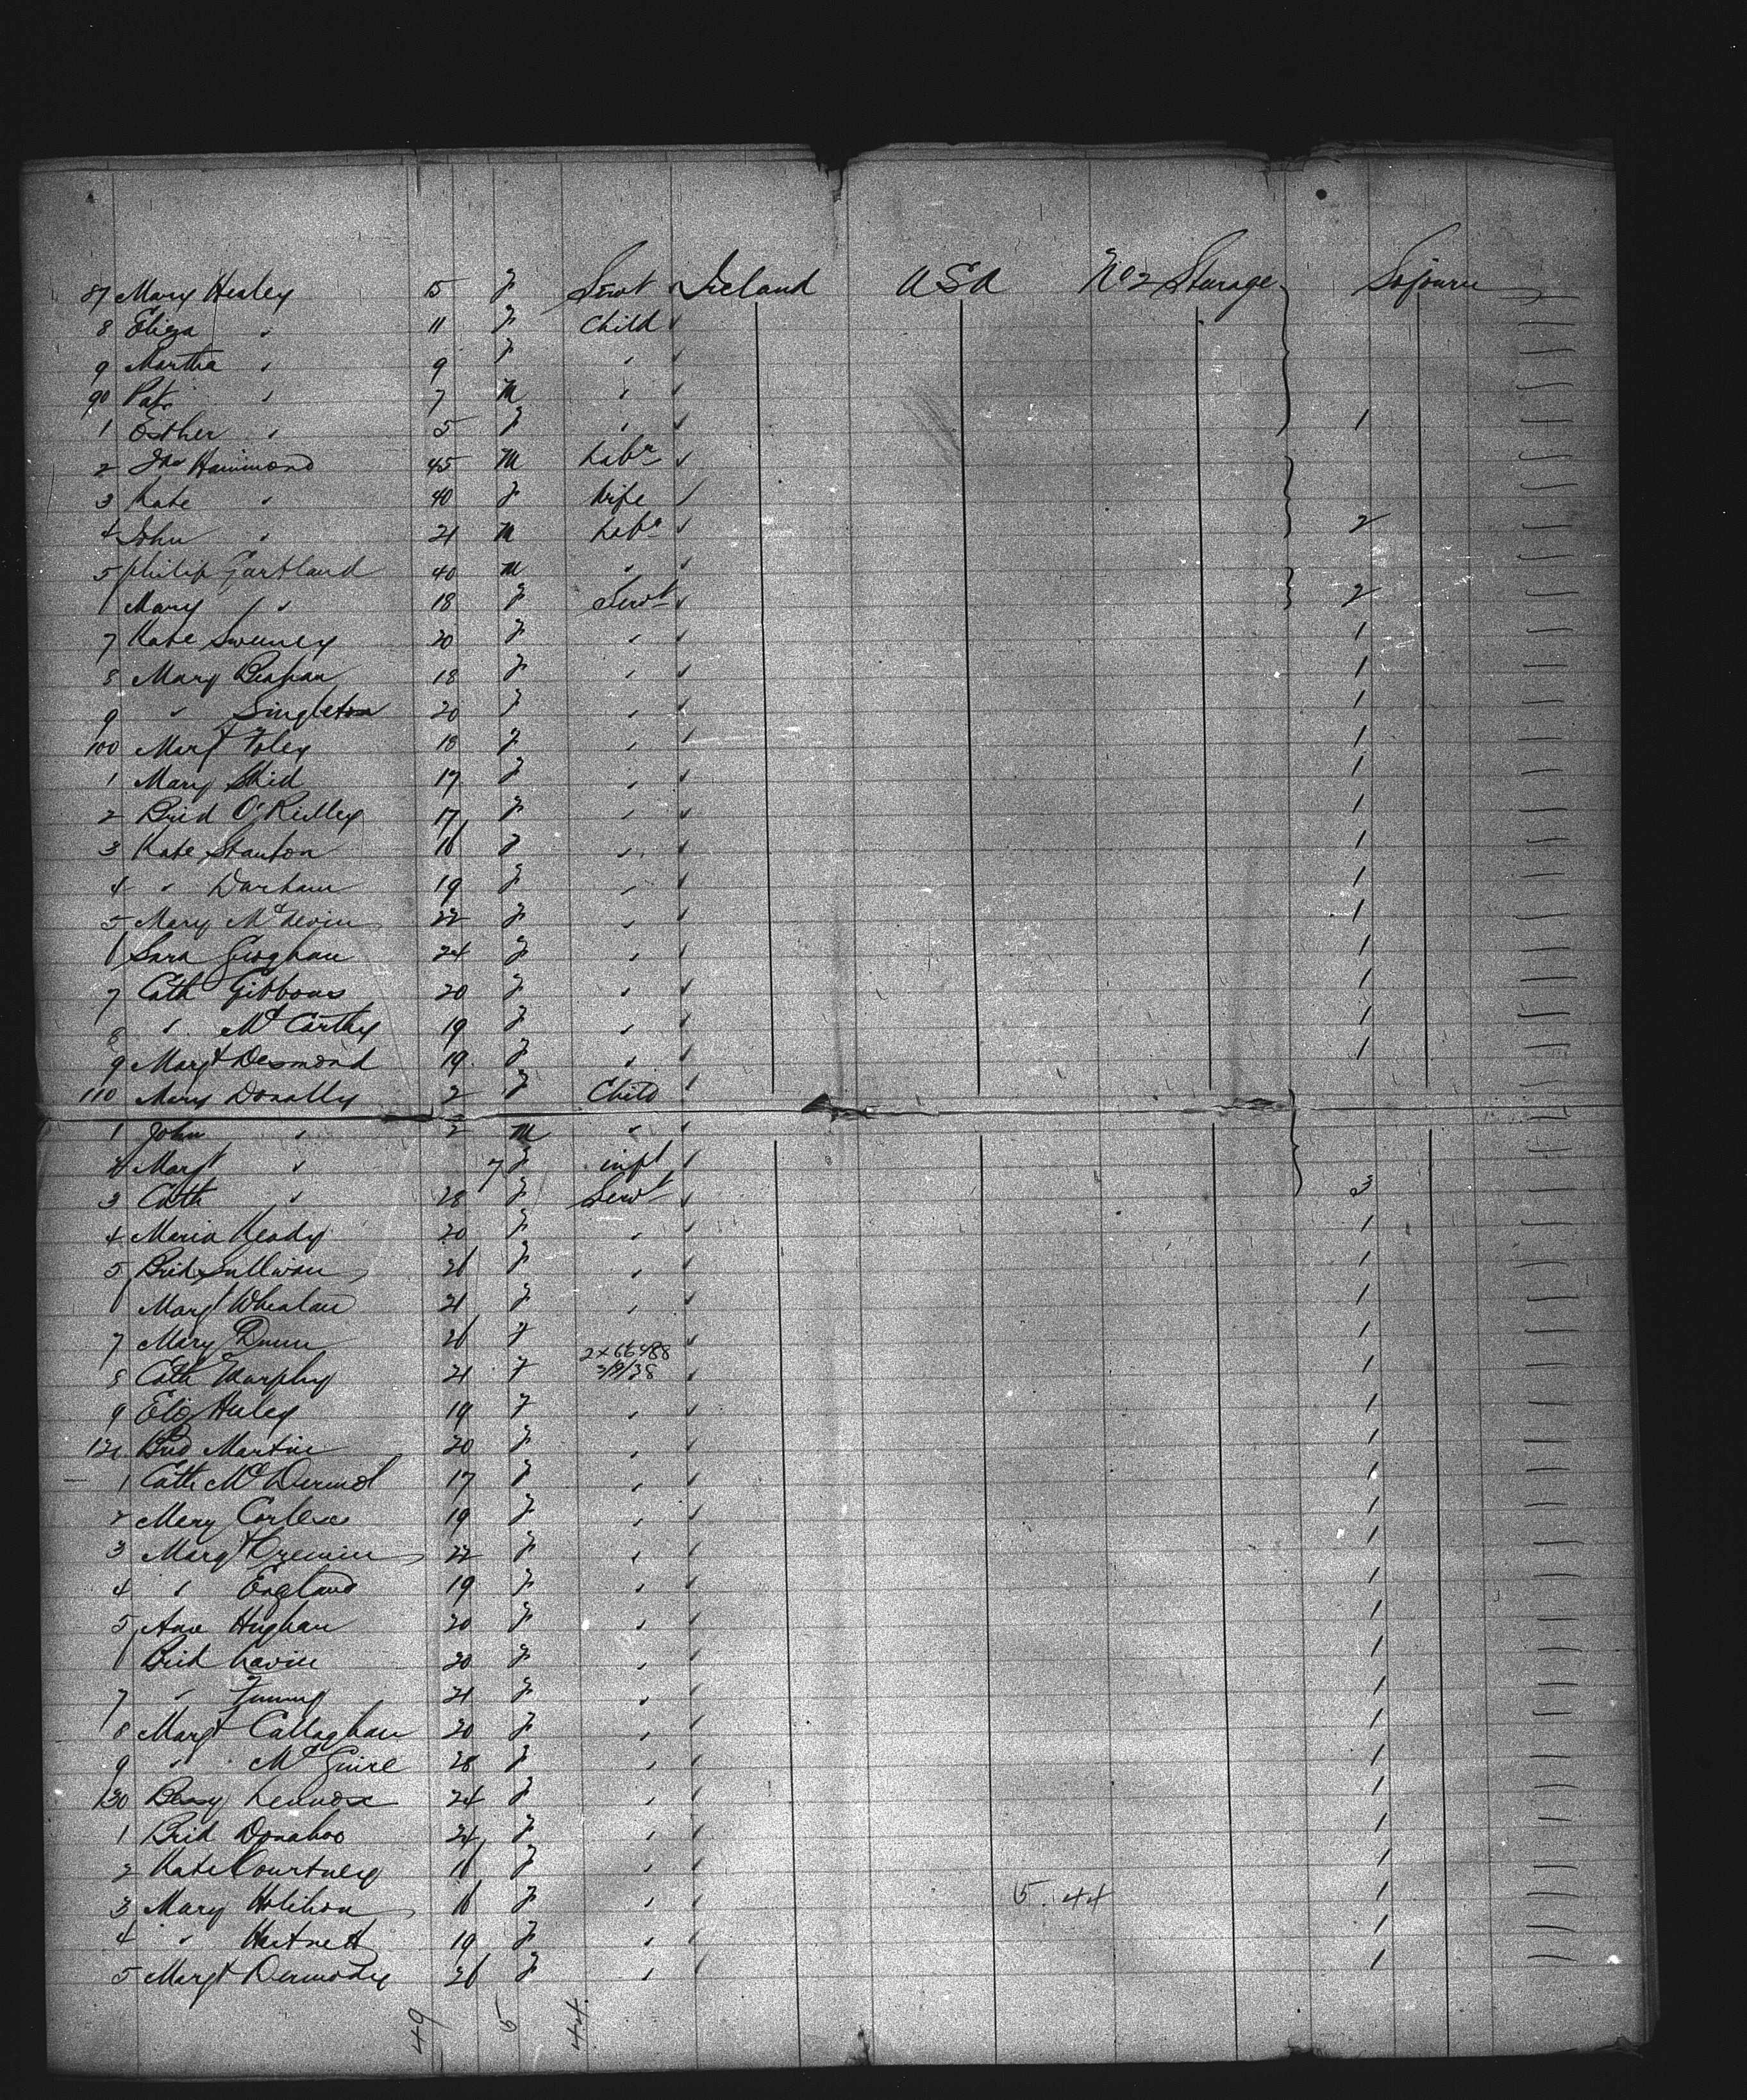 87 Mary Healey 15 F Servt Ireland USA No 2 Steerage Sojourn
8 Eliza " 11 F Child
9 Martha " 9 F "
90 Pat " 7 M "
1 Esther " 5 F " 1
2 Jno Hammond 45 M Labr
3 Kate " 40 F Wife
4 John " 21 M Labr 2
5 Philip Gartland 40 M "
6 Mary " 18 F Servt 2
7 Kate Sweeney 20 F " 1
8 Mary 18 F " 1
9 " Singleton 20 F " 1
100 Margt Foley 18 F " 1
1 Mary 17 F " 1
2 Brid O'Reilley 17 F " 1
3 Kate Stanton 16 F " 1
4 " Durham 19 F " 1
5 Mary 22 F " 1
6 Sara Geoghan 24 F " 1
7 Cath Gibbons 20 F " 1
8 " McCarthy 19 F " 1
9 Margt Desmond 19 F " 1
110 Mary Donally 2 F Child
1 John " 2 M "
2 Margt " 7 F inft
3 Cath " 28 F Servt 3
4 Maria Heady 20 F " 1
5 Brid Sullivan 26 F " 1
6 Margt Whealan 21 F " 1
7 Mary Dunn 26 F 1
2 x 66488
8 Cath Murphy 21 F 3/9/38 1
9 Eliz Huley 19 F " 1
120 Brid Martin 20 F " 1
1 Cath McDermot 17 F " 1
2 Mary 19 F " 1
3 Margt Cremin 22 F " 1
4 " England 19 F " 1
5 Ann Hughan 20 F " 1
6 Brid Lavin 20 F " 1
7 " 21 F " 1
8 Margt Callaghan 20 F " 1
9 " McGuire 28 F " 1
130 Bessy Lennox 24 F " 1
1 Brid Donahoo 24 F " 1
2 Kate Courtney 16 F " 1
3 Mary Holihon 16 F " 5.44 1
4 " Hartnett 19 F " 1
5 Margt Dermody 26 F " 1
49 5 44